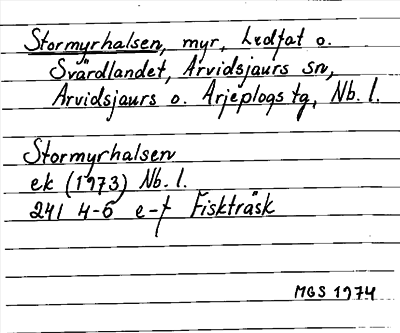 Stormyrhalsen, myr, Ledfat o.
Svärdlandet, Arvidsjaurs sn,
Arvidsjaurs o. Arjeplogs tg, Nb. l.
Stormyrhalsen
ek (1973) Nb. l.
24I 4-5 e-f Fiskträsk
MGS 1974